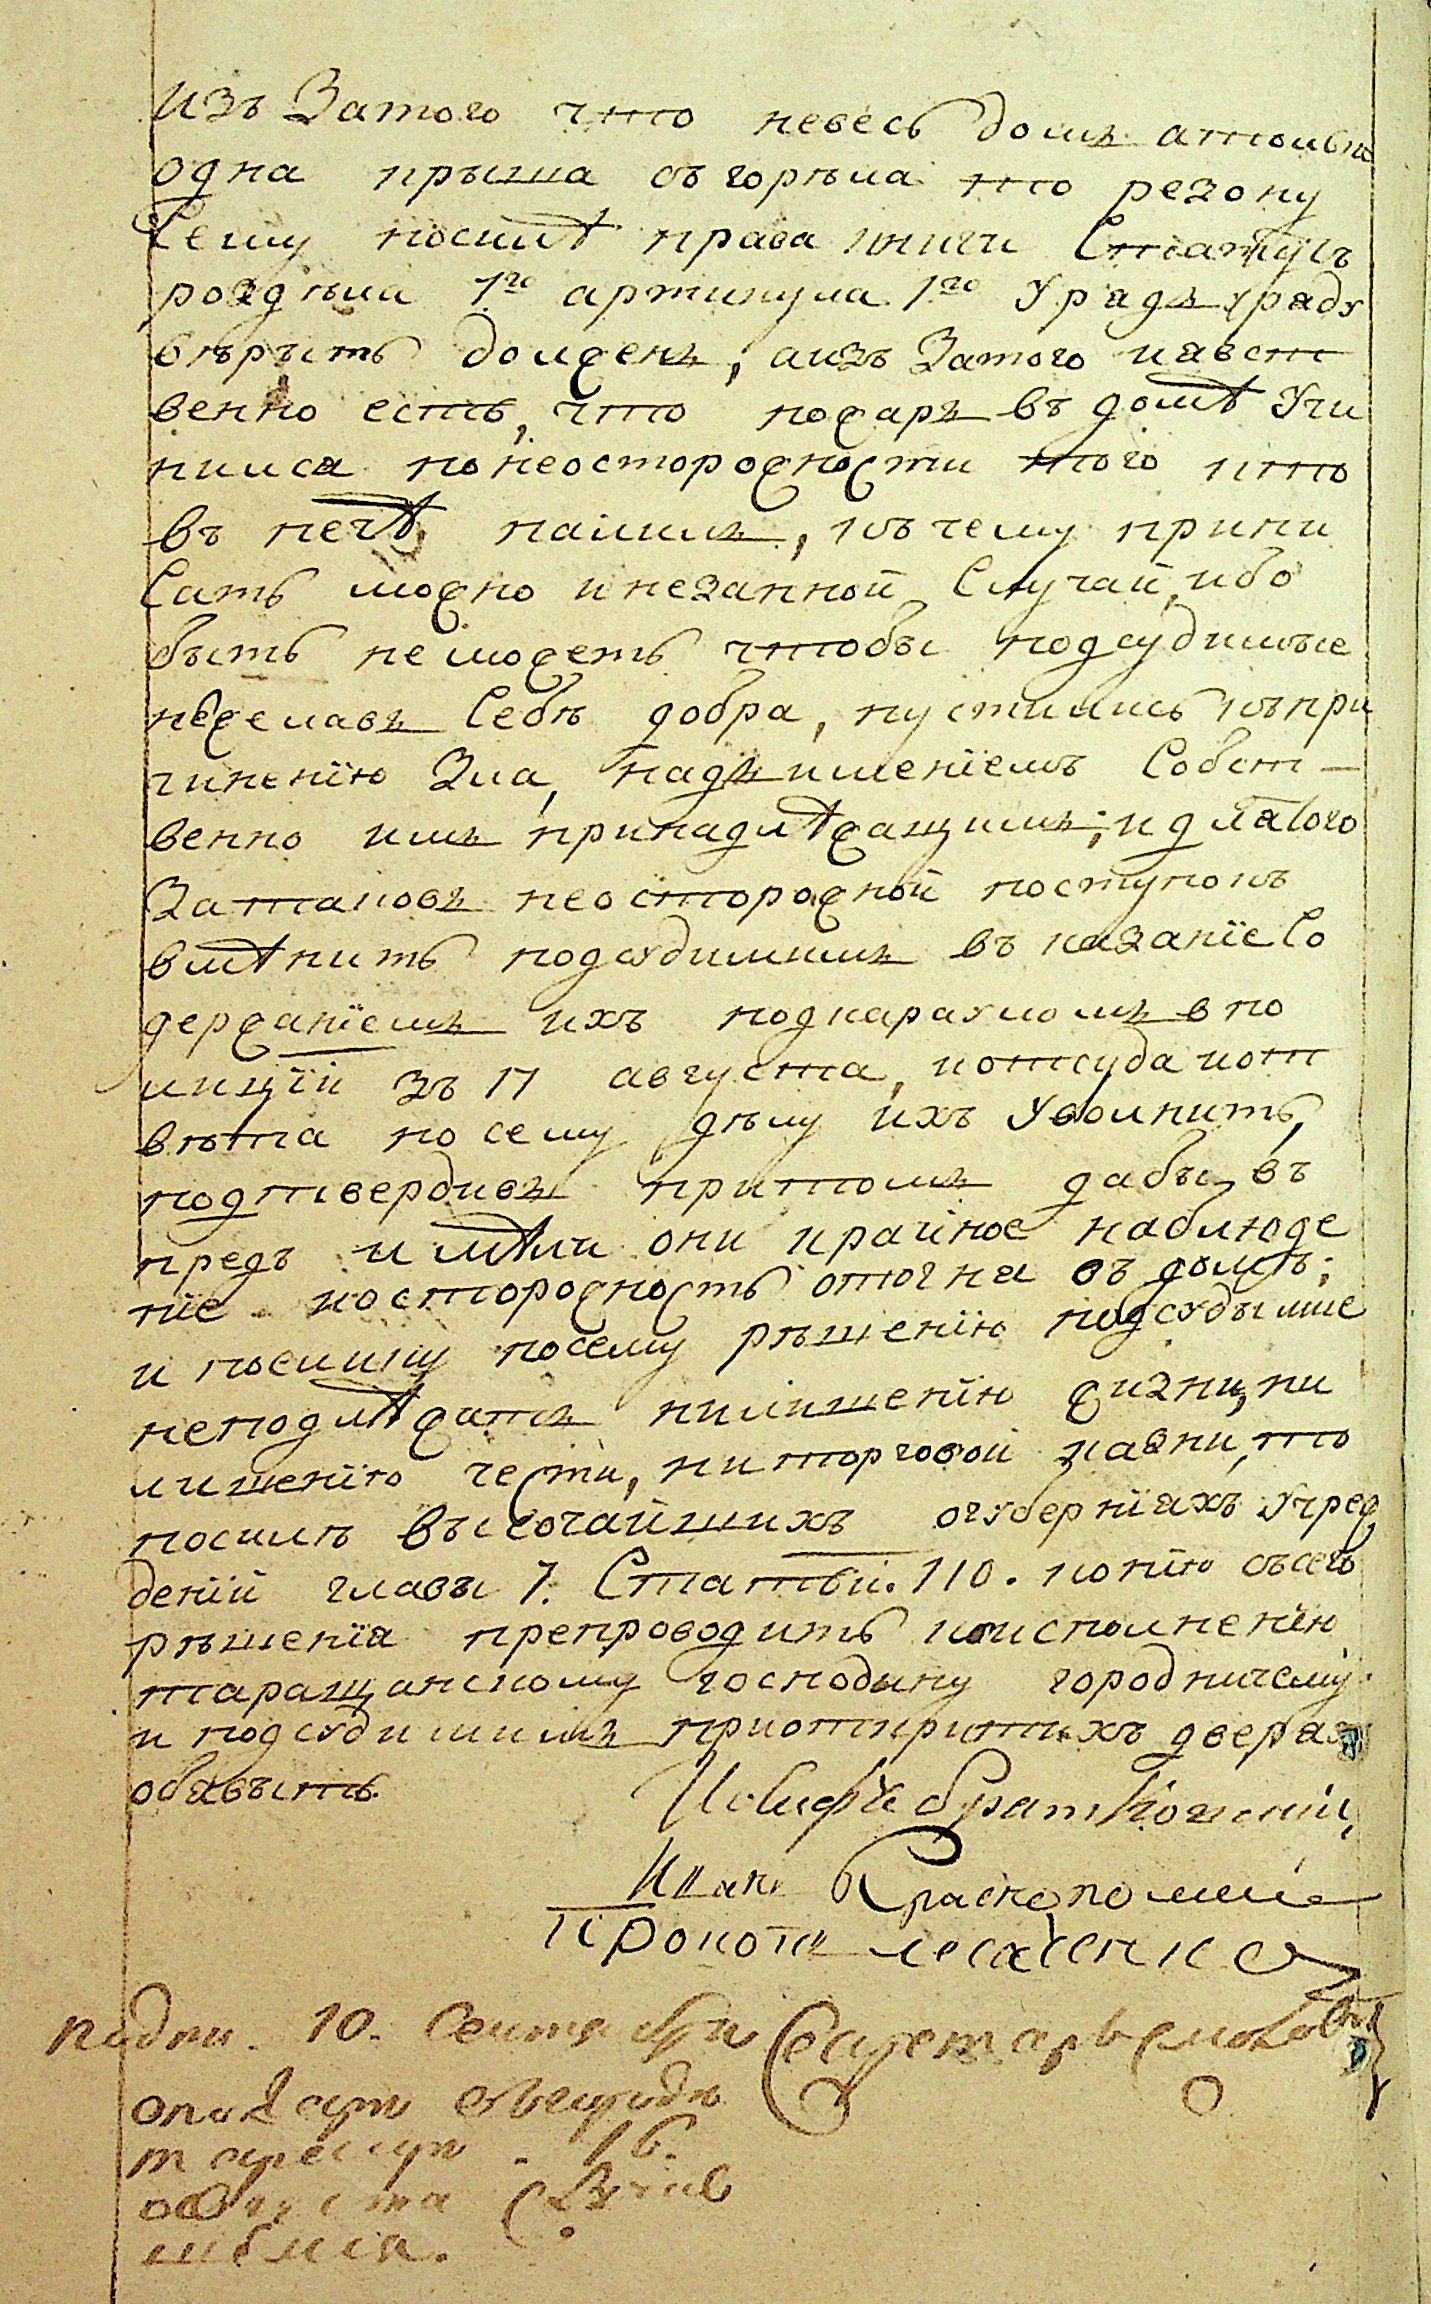 изъ Затого что невесь домъ атолько
одна крыша обгорѣла что резону
Сему посилѣ права книги Статутъ
роздѣла 1го артикула 1го Урадъ ураду
вѣрыть долженъ, аизъ Затого иавст
венно есть, что пожаръ въ домѣ Учи
нился понеосторожности того кто
въ печѣ палилъ, къчему припи
Сать можно инезапной Случай, ибо
быть неможетъ чтобы подсудимые
нежелавъ Себѣ добра, пустились къпри
чинению Зла, надъ имениемъ Собст–
венно имъ принадлѣжащимъ; и длятого
Затаковъ неосторожной поступокъ
вмѣнить подсудимимъ въ казание Со
держаниемъ ихъ подкарауломъ в по
лиции зъ 17 августа, иотсуда иот
вѣта посему дѣлу ихъ Уволнить,
подтвердивъ притомъ дабы въ
предь имѣли они крайное наблюде
ние иосторожность отогня въ домѣ;
и поелику посему рѣшению подсудымие
неподлѣжатъ нилишению жизни, ни
лишению чести, ниторговой казни, то
посилѣ высочайшихъ огубернияхъ Учреж
дений главы 7. Статьи. 110. копию съсего
рѣшения препроводить кисполнению
таращанскому господину городничему
и подсудимимъ приоткритихъ дверяхъ
обявыть.
Иосифъ Братковский,
Иванъ Красно
Прокопъ
подпи. 10. Сентября Секретарь